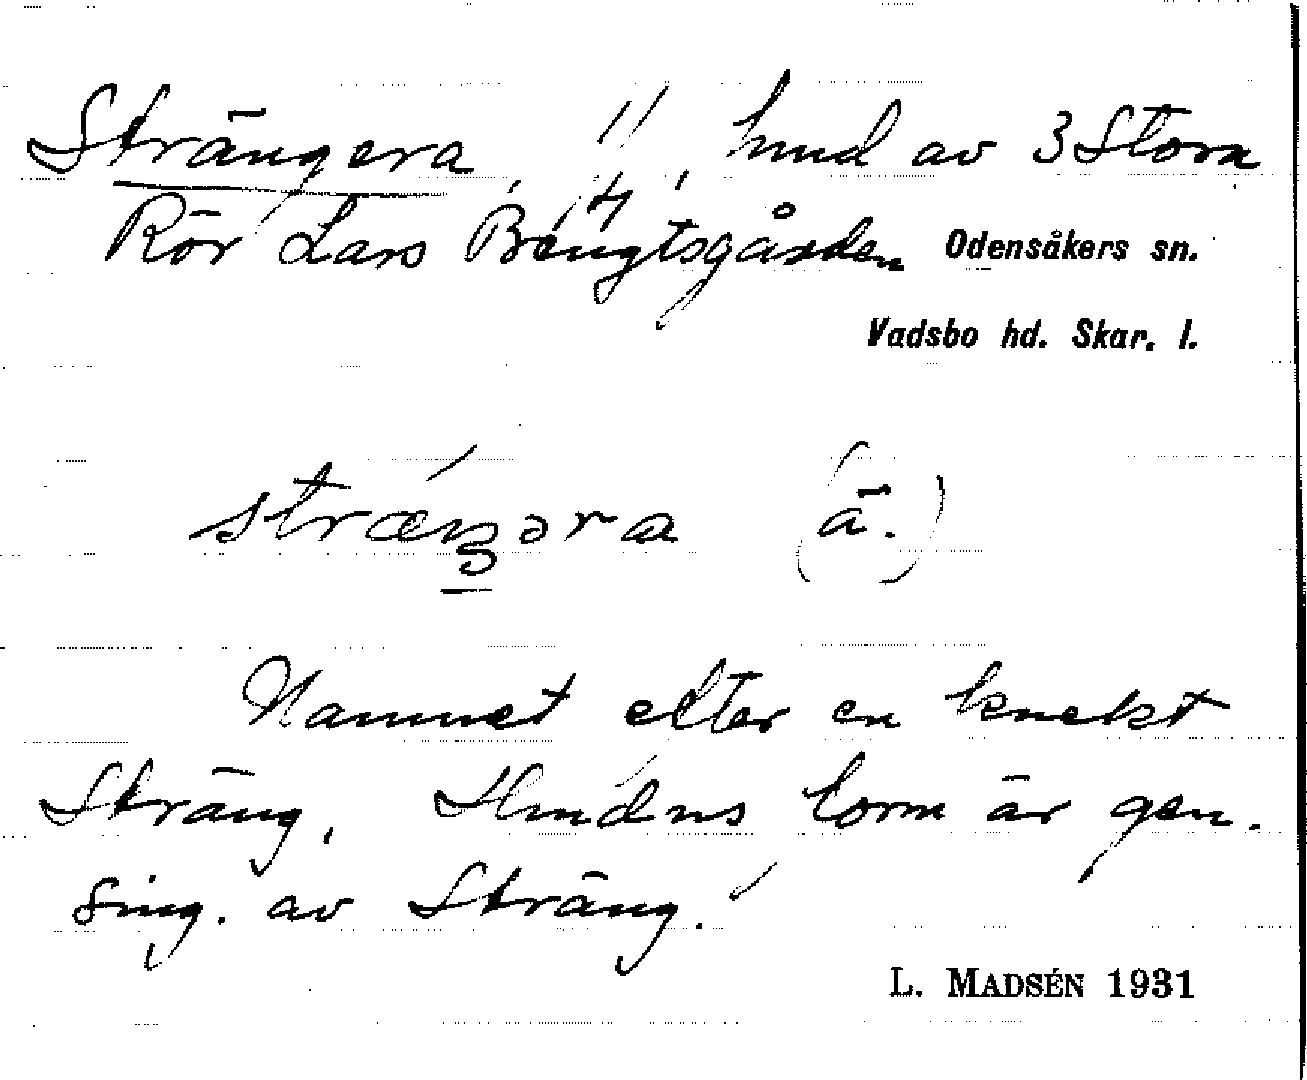 Strängera, 1/4, hmd av 3 Stora
Rör Lars Bengtsgården Odensåkers sn.
Vadsbo hd. Skar. l.
stræŋəra (ä.)
Namnet efter en knekt
Sträng. Hmdns form är gen.
sing. av Sträng.
L. MADSÉN 1931